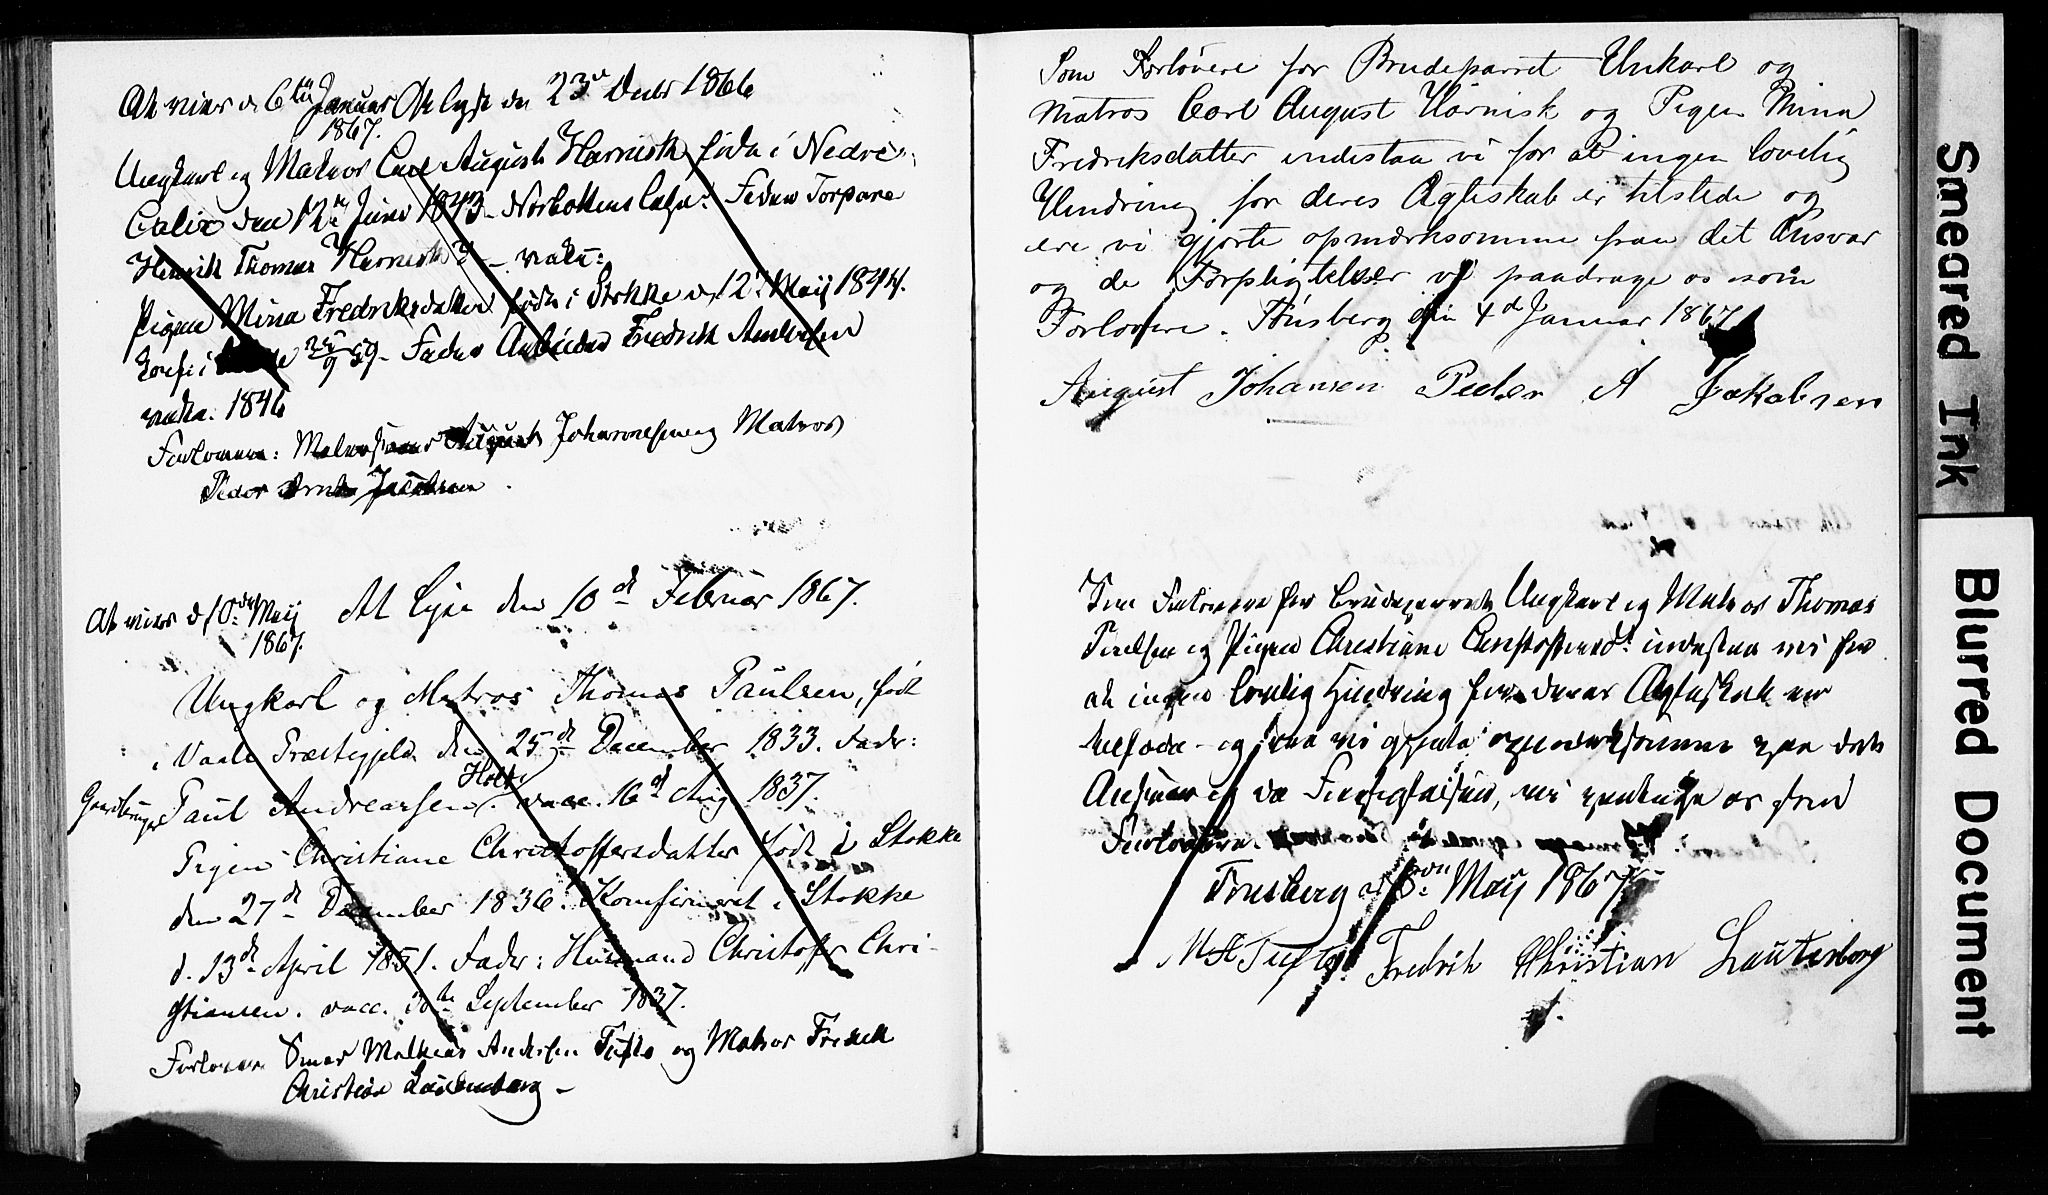 At vies d. 6te Januar At lyse den 23de Decbr 1866
1867.
Ungkarl og Matros Carl August Harnesk, føde i Nedre
Calix den 12te Juni 1843. Norbottens Fader Torpare
Henrik Thomas Harnesk
Pigen Mina Fredriksdatter føde i Stokke d. 12te Maij 1844.
Conf. i 59. Fader Arbeider Fredrik Andersen
1846
Forlovere: August Johannesen og Matros
Peder Jacobsen.
At vies d. 10de Maij
1867.
At lyse den 10de Februar 1867.
Ungkarl og Matros Thomas Paulsen, født
i Vaale Præstegjeld den 25de December 1833. Fader:
Gaardbruger Paul Andreassen Holt, vacc. 16de Aug 1837.
Pigen Christiane Christoffersdatter født i Stokke
den 27de December 1836. Konfirmeret i Stokke
d. 13de April 1851. Fader: Husmand Christoffer Chri-
stiansen. vacc. September 1837.
Forlovere Mathias Andersen Tufte og Matros Fredrik
Christian Lautenborg –
Som Forlovere for Brudeparret Unkarl og
Matros Carl August Harnisk og Pigen Mina
Fredriksdatter indestaa vi for at ingen lovelig
Hindring for deres Ægteskab er tilstede og
ere vi gjorte opmærksomme paa det Ansvar
og de Forpligtelser vi paadrage os som
Forlovere. Tønsberg din 4d Januar 1867
August Johansen Peder A Jakobsen
Som Forlovere for Brudeparret Ungkarl og Matros Thomas
Poulsen og Pigen Christiane Christoffersd: indestaa vi for
at ingen lovlig Hindring for deres Ægteskab er
tilstede – og ere vi gjorte opmærksomme paa det
Ansvar og de Forpligtelser, vi paadrage os som
Forlovere.
Tønsberg d. 8de Maij 1867
M A Tufte Fredrik Christian Lautenborg
Smeared Ink
Blurred Document